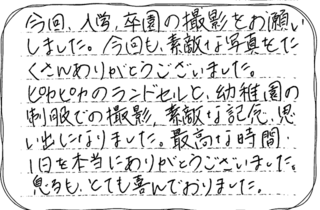 今回、入学、卒園の撮影をお願い
しました。今回も、素敵な写真をた
くさんありがとうございました。
ピカピカのランドセルと、幼稚園の
制服での撮影、素敵な記念、思
い出になりました。最高な時間・
1日を本当にありがとうございました。
息子も、とても喜んでおりました。